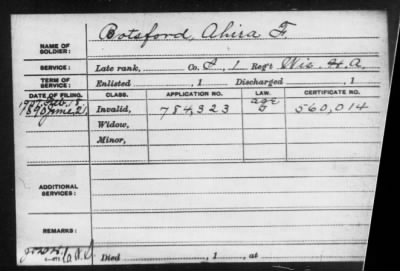 NAME OF SOLDIER: Botsford, Ahira F.
SERVICE: Late rank, Co. I, 1 Reg't Wis. H. A.
TERM OF SERVICE: Enlisted , 1 Discharged , 1
DATE OF FILING. CLASS. APPLICATION NO. LAW. CERTIFICATE NO.
1907 Feb. 18 age
1890 June 21, Invalid, 784,323 560,014
Widow,
Minor,
ADDITIONAL SERVICES:
REMARKS:
Died , 1 , at